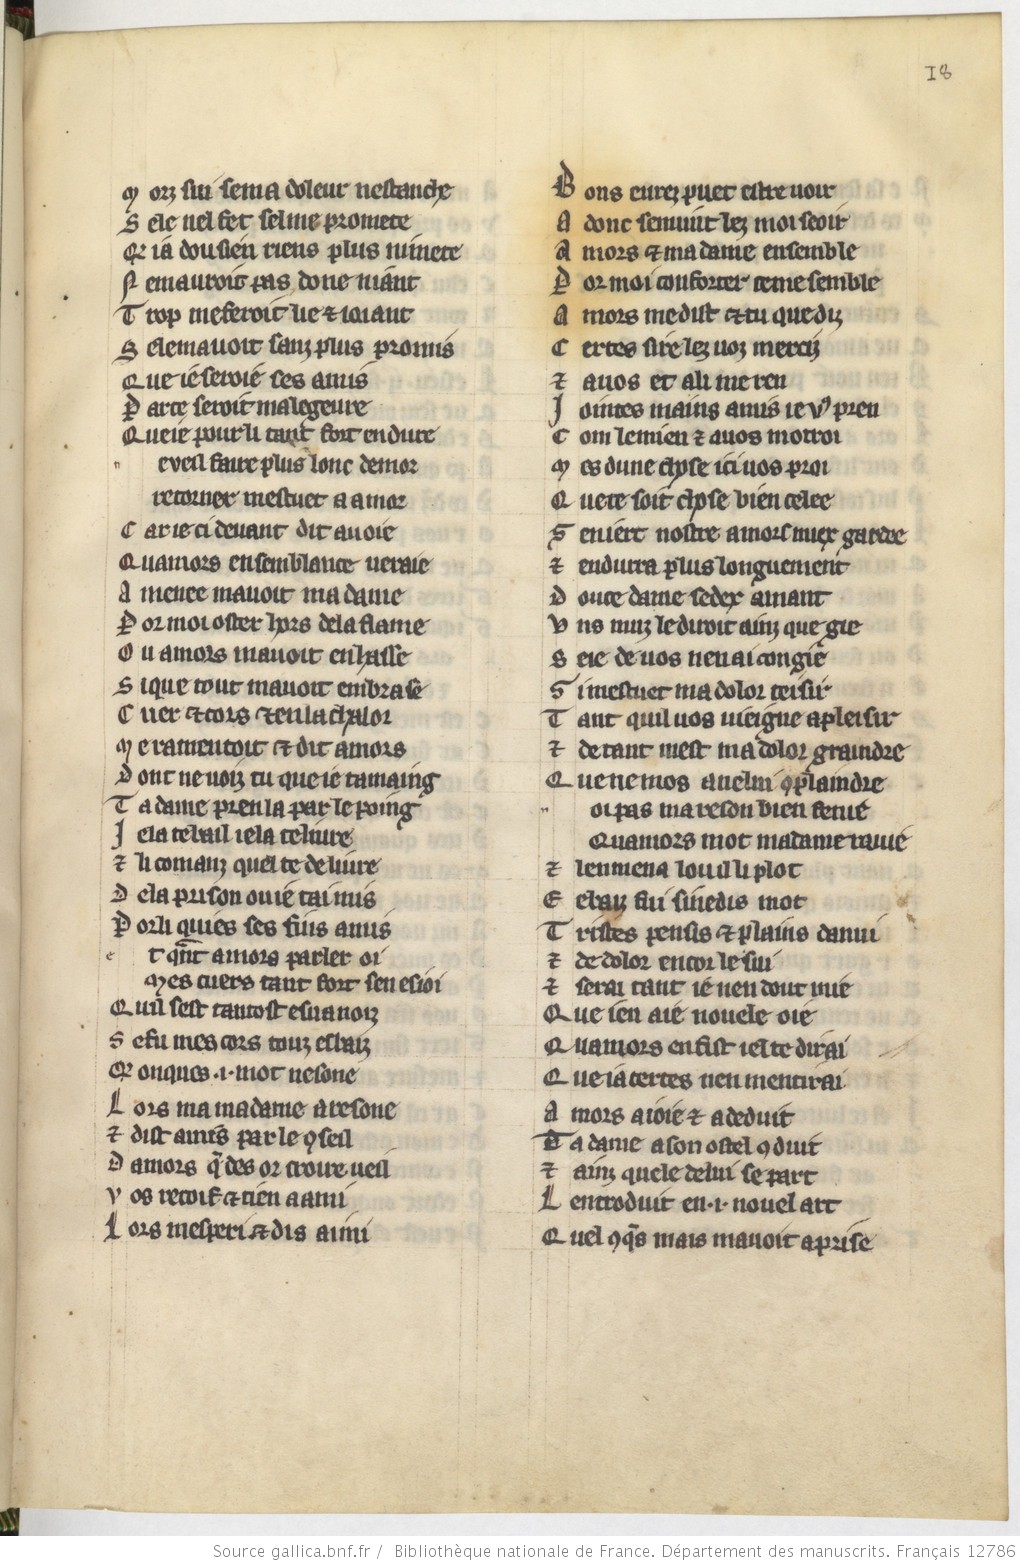 18
M orz sui sema doleur nestanche
S ele nel fet selme promete
Et ia dou sien riens plus ni mete
N emauroit pas done niant
T rop me feroit lie et ioiant
S elemavoit sanz plus promis
Que ie seroie ses amis
P arte seroit malegeure
Que ie pour li tant fort endure
evesl faire plus lonc demor
retorner mestuet a amor
C ar ie ci devant dit avoie
Q uamors ensemblance veraie
A menee mavoit ma dame
P or moi oster hors dela flame
O u amors mavoit enhasse
S ique tout mavoit embrase
C uer et cors et enla chalor
M e ramentoit et dit amors
D ont ne voiz tu que ie tamaing
T a dame pren la par le poing
J e la te bail ie la te livre
⁊ li comanz quel te delivre
D ela prison ou ie tai mis
P or li quies ses fins amis
e t q̄nt amors parler oi
Mes cuers tant fort sen esioi
Quil sest tantost esvanoiz
S e fu mes cors touz esbaiz
Et onques .i. mot ne sone
L ors ma ma dame aresone
⁊ dist amis par le ꝯseil
D amors q̄ des or trouve veil
V os recoif et tien a ami
L ors mesperi et dis aimi
B ons eurez puet estre voir
A donc senvint lez moi seoir
A mors et ma dame ensemble
P or moi conforter ce me semble
A mors me dist et tu que diz
C ertes sire lez voz merciz
⁊ a vos et a li me ren
J ointes mains amis ie vꝰ pren
C om le mien ⁊ a vos motroi
M es dune chose ici vos proi
Q uece soit chose bien celee
S en iert nostre amors miex gardee
⁊ endurra plus longuement
D ouce dame se dex ament
V ns muiz le diroit ainz que gie
S eie de vos nen ai congie
S i mestuet ma dolor teisir
T ant quil vos viengne a pleisir
⁊ de tant mest ma dolor graindre
Q ue ne mos a nelui ꝯplaindre
oi pas ma reson bien fenie
Quamors mot ma dame ravie
⁊ lenmena lou il li plot
E ebaiz fui si ne dis mot
T ristes pensis et plains danui
⁊ de dolor encor le sui
⁊ serai tant ie nen dout mie
Q ue ien aie novele oie
Q uamors en fist iel te dirai
Q ue ia certes nen mentirai
A mors a ioie et a deduit
T a dame a son ostel ꝯduit
⁊ ainz quele de lui se part
L entroduit en .i. novel art
Q uel ꝯq̄s mais mavoit aprise
Source gallica.bnf.fr / Bibliothèque nationale de France. Département des manuscrits. Français 12786